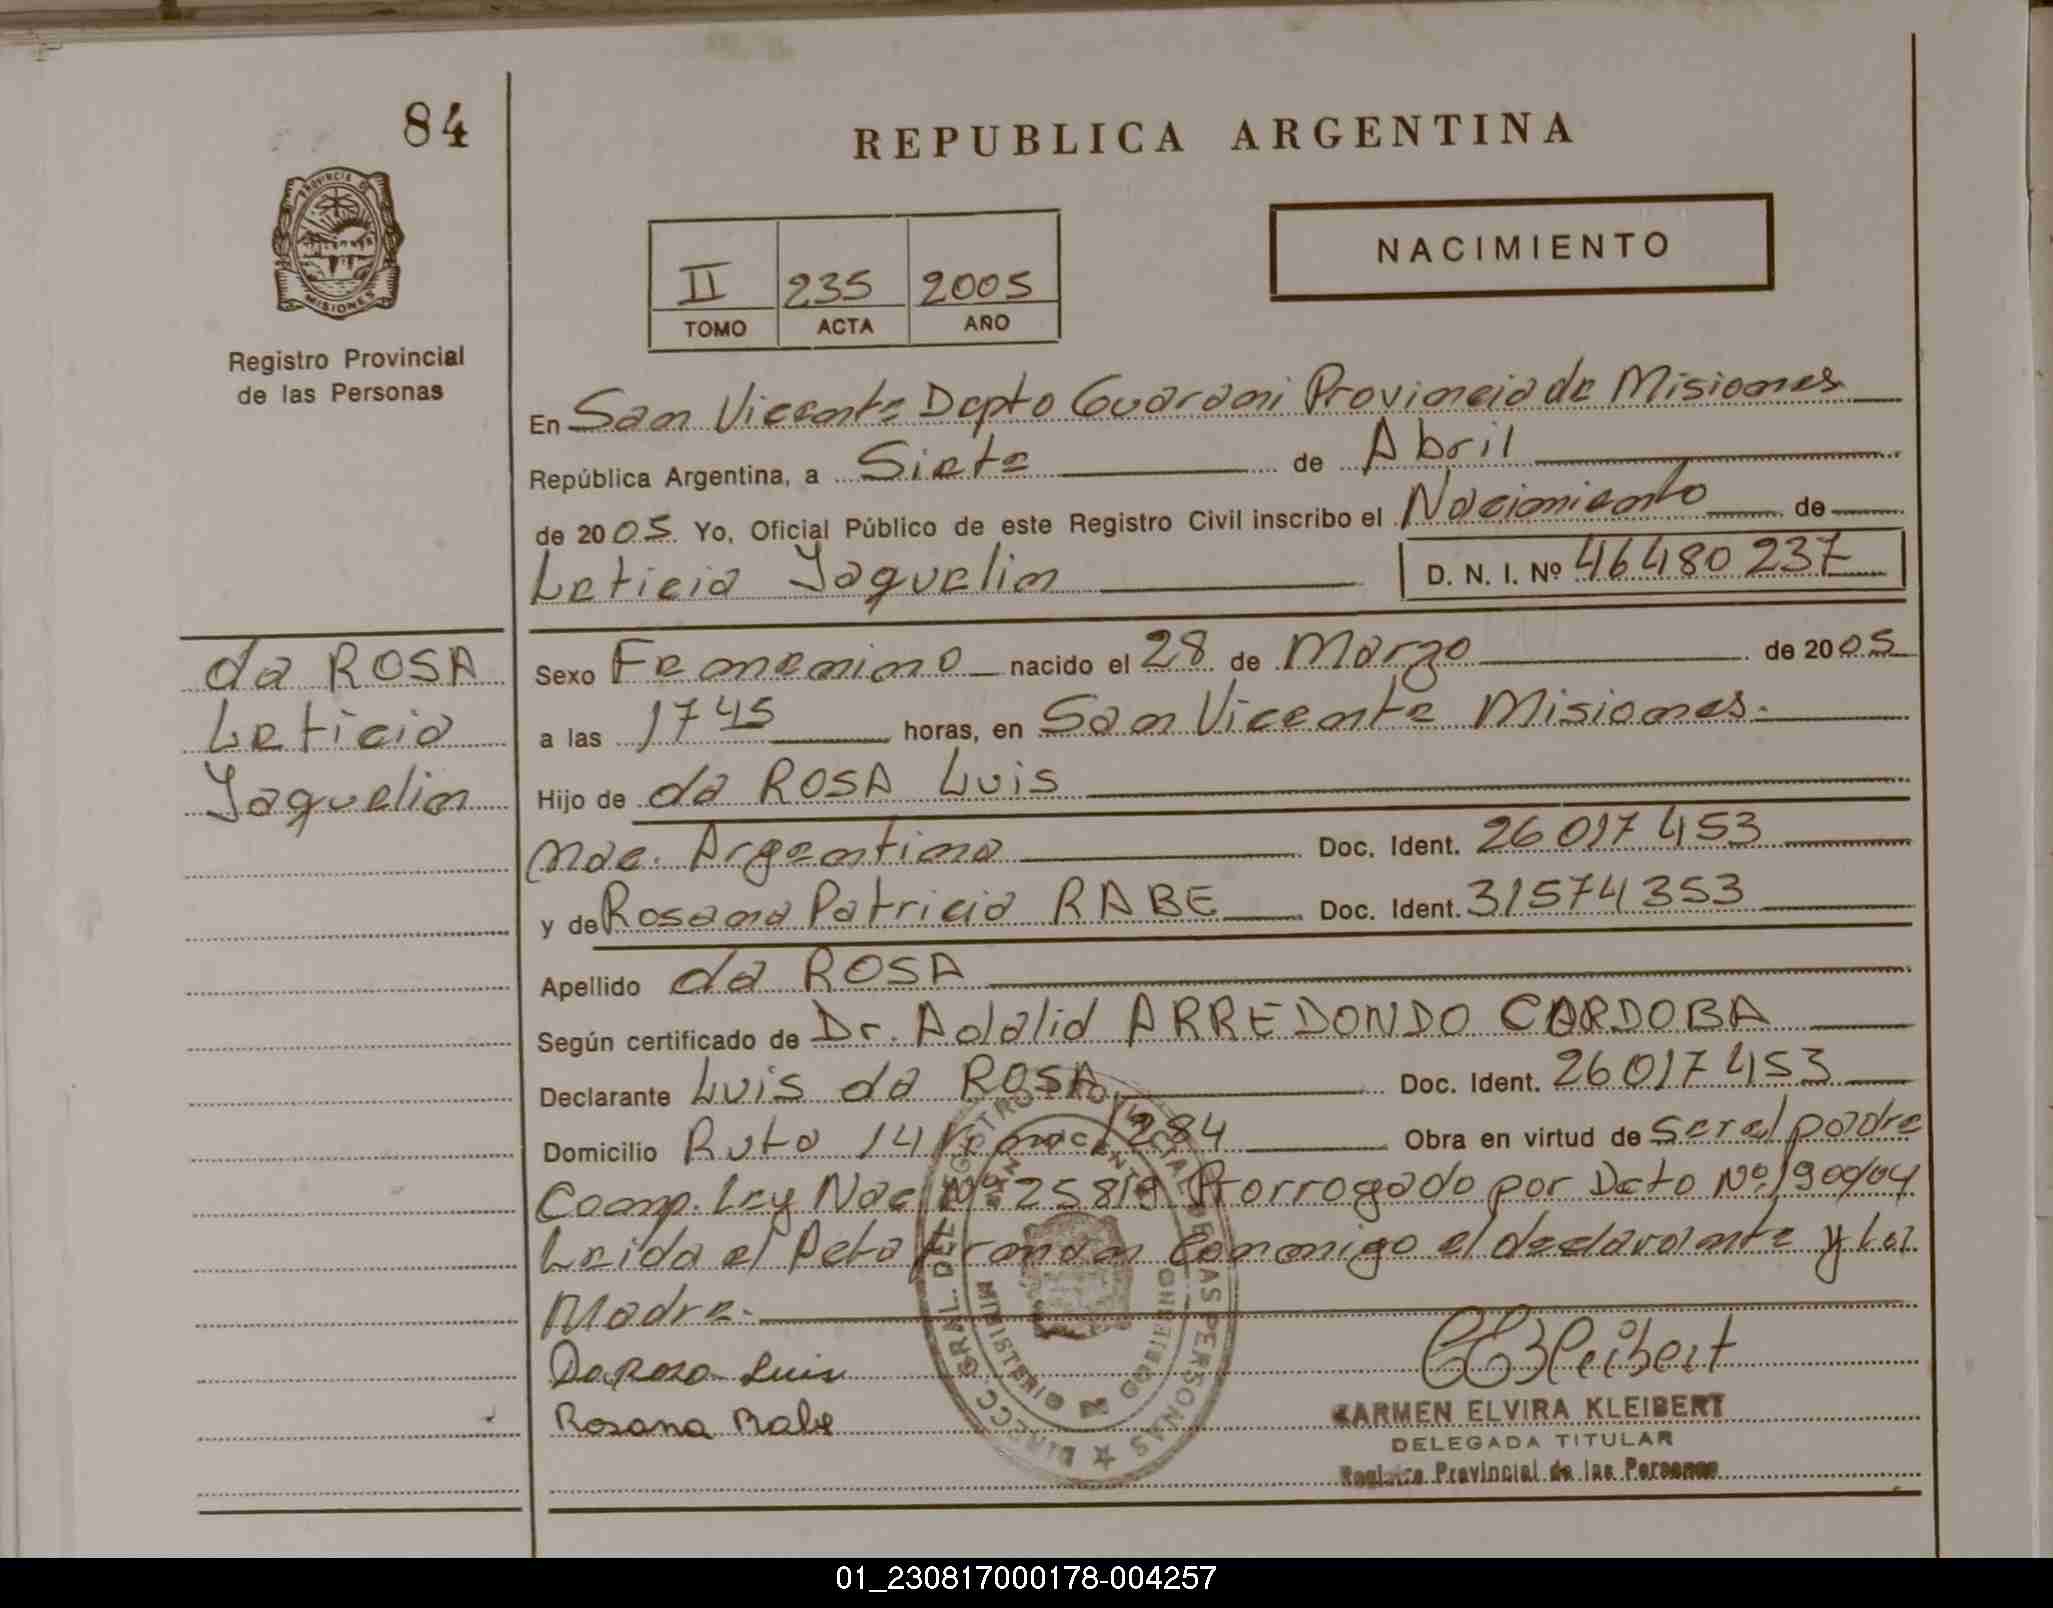 84
PROVINCIA DE
MISIONES
Registro Provincial
de las Personas
REPUBLICA ARGENTINA
NACIMIENTO
II 235 2005
TOMO ACTA AÑO
En San Vicente Depto Guarani Provincia de Misiones
República Argentina, a Siete de Abril
de 2005 Yo, Oficial Público de este Registro Civil inscribo el Nacimiento de
Leticia Yaquelin D. N. I. Nº 46480237
da ROSA
Leticia
Yaquelin
Sexo Femenino nacido el 28 de Marzo de 2005
a las 1745 horas, en San Vicente Misiones.
Hijo de da ROSA Luis
Nac. Argentina Doc. Ident. 26017453
y de Rosana Patricia RABE Doc. Ident. 31574353
Apellido da ROSA
Según certificado de Dr. Adalid ARREDONDO CORDOBA
Declarante Luis da ROSA Doc. Ident. 26017453
Domicilio Ruta 14 1284 Obra en virtud de ser el padre
Comp. Ley Nac Nº 25819 Prorrogado por Dcto Nº 1900/04
Leida el Acta firman conmigo el declarante y La
Madre.
Da Rosa Luis
Rosana Rabe
CEKleibert
KARMEN ELVIRA KLEIBERT
DELEGADA TITULAR
Registro Provincial de las Personas
DIRECC. GRAL. DEL REGISTRO PROVINCIAL DE LAS PERSONAS
SAN VICENTE
MINISTERIO DE GOBIERNO
01_230817000178-004257